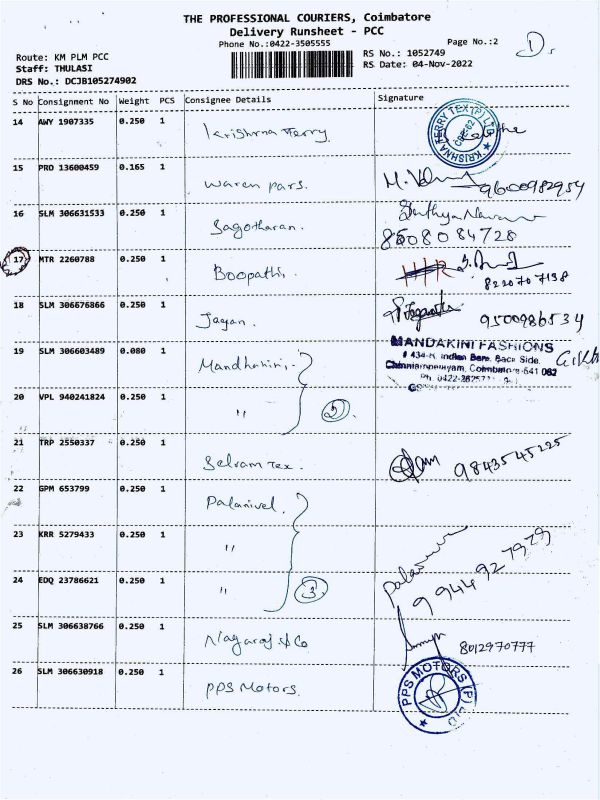 THE PROFESSIONAL COURIERS, Coimbatore
Delivery Runsheet - PCC
Phone No.:0422-3505555
Page No.:2
D.
Route: KM PLM PCC
RS No.: 1052749
Staff: THULASI
RS Date: 04-Nov-2022
DRS No.: DCJB105274902
S No Consignment No Weight PCS Consignee Details Signature
14 AWY 1907335 0.250 1 Krishna Terry KRISHNA TERRY TEX (P) LTD
15 PRO 13600459 0.165 1 Waren pars. 9600982954
16 SLM 306631533 0.250 1 Sagotharan.
8508084728
17 MTR 2260788 0.250 1 Boopathi.
8220707198
18 SLM 306676866 0.250 1 Jagan. 9500986534
19 SLM 306603489 0.080 1 Mandhakini,- MANDAKINI FASHIONS
Indian Bank Back Side,
Coimbatore-641 062
20 VPL 940241824 0.250 1 " 2
21 TRP 2550337 0.250 1 Selvam Tex. 9843545225
22 GPM 653799 0.250 1 Palanivel.
23 KRR 5279433 0.250 1 " 9944927929
24 EDQ 23786621 0.250 1 " 3
25 SLM 306638766 0.250 1 Nagaraj & Co 8012970777
26 SLM 306630918 0.250 1 PPS Motors. PPS MOTORS (P) LTD